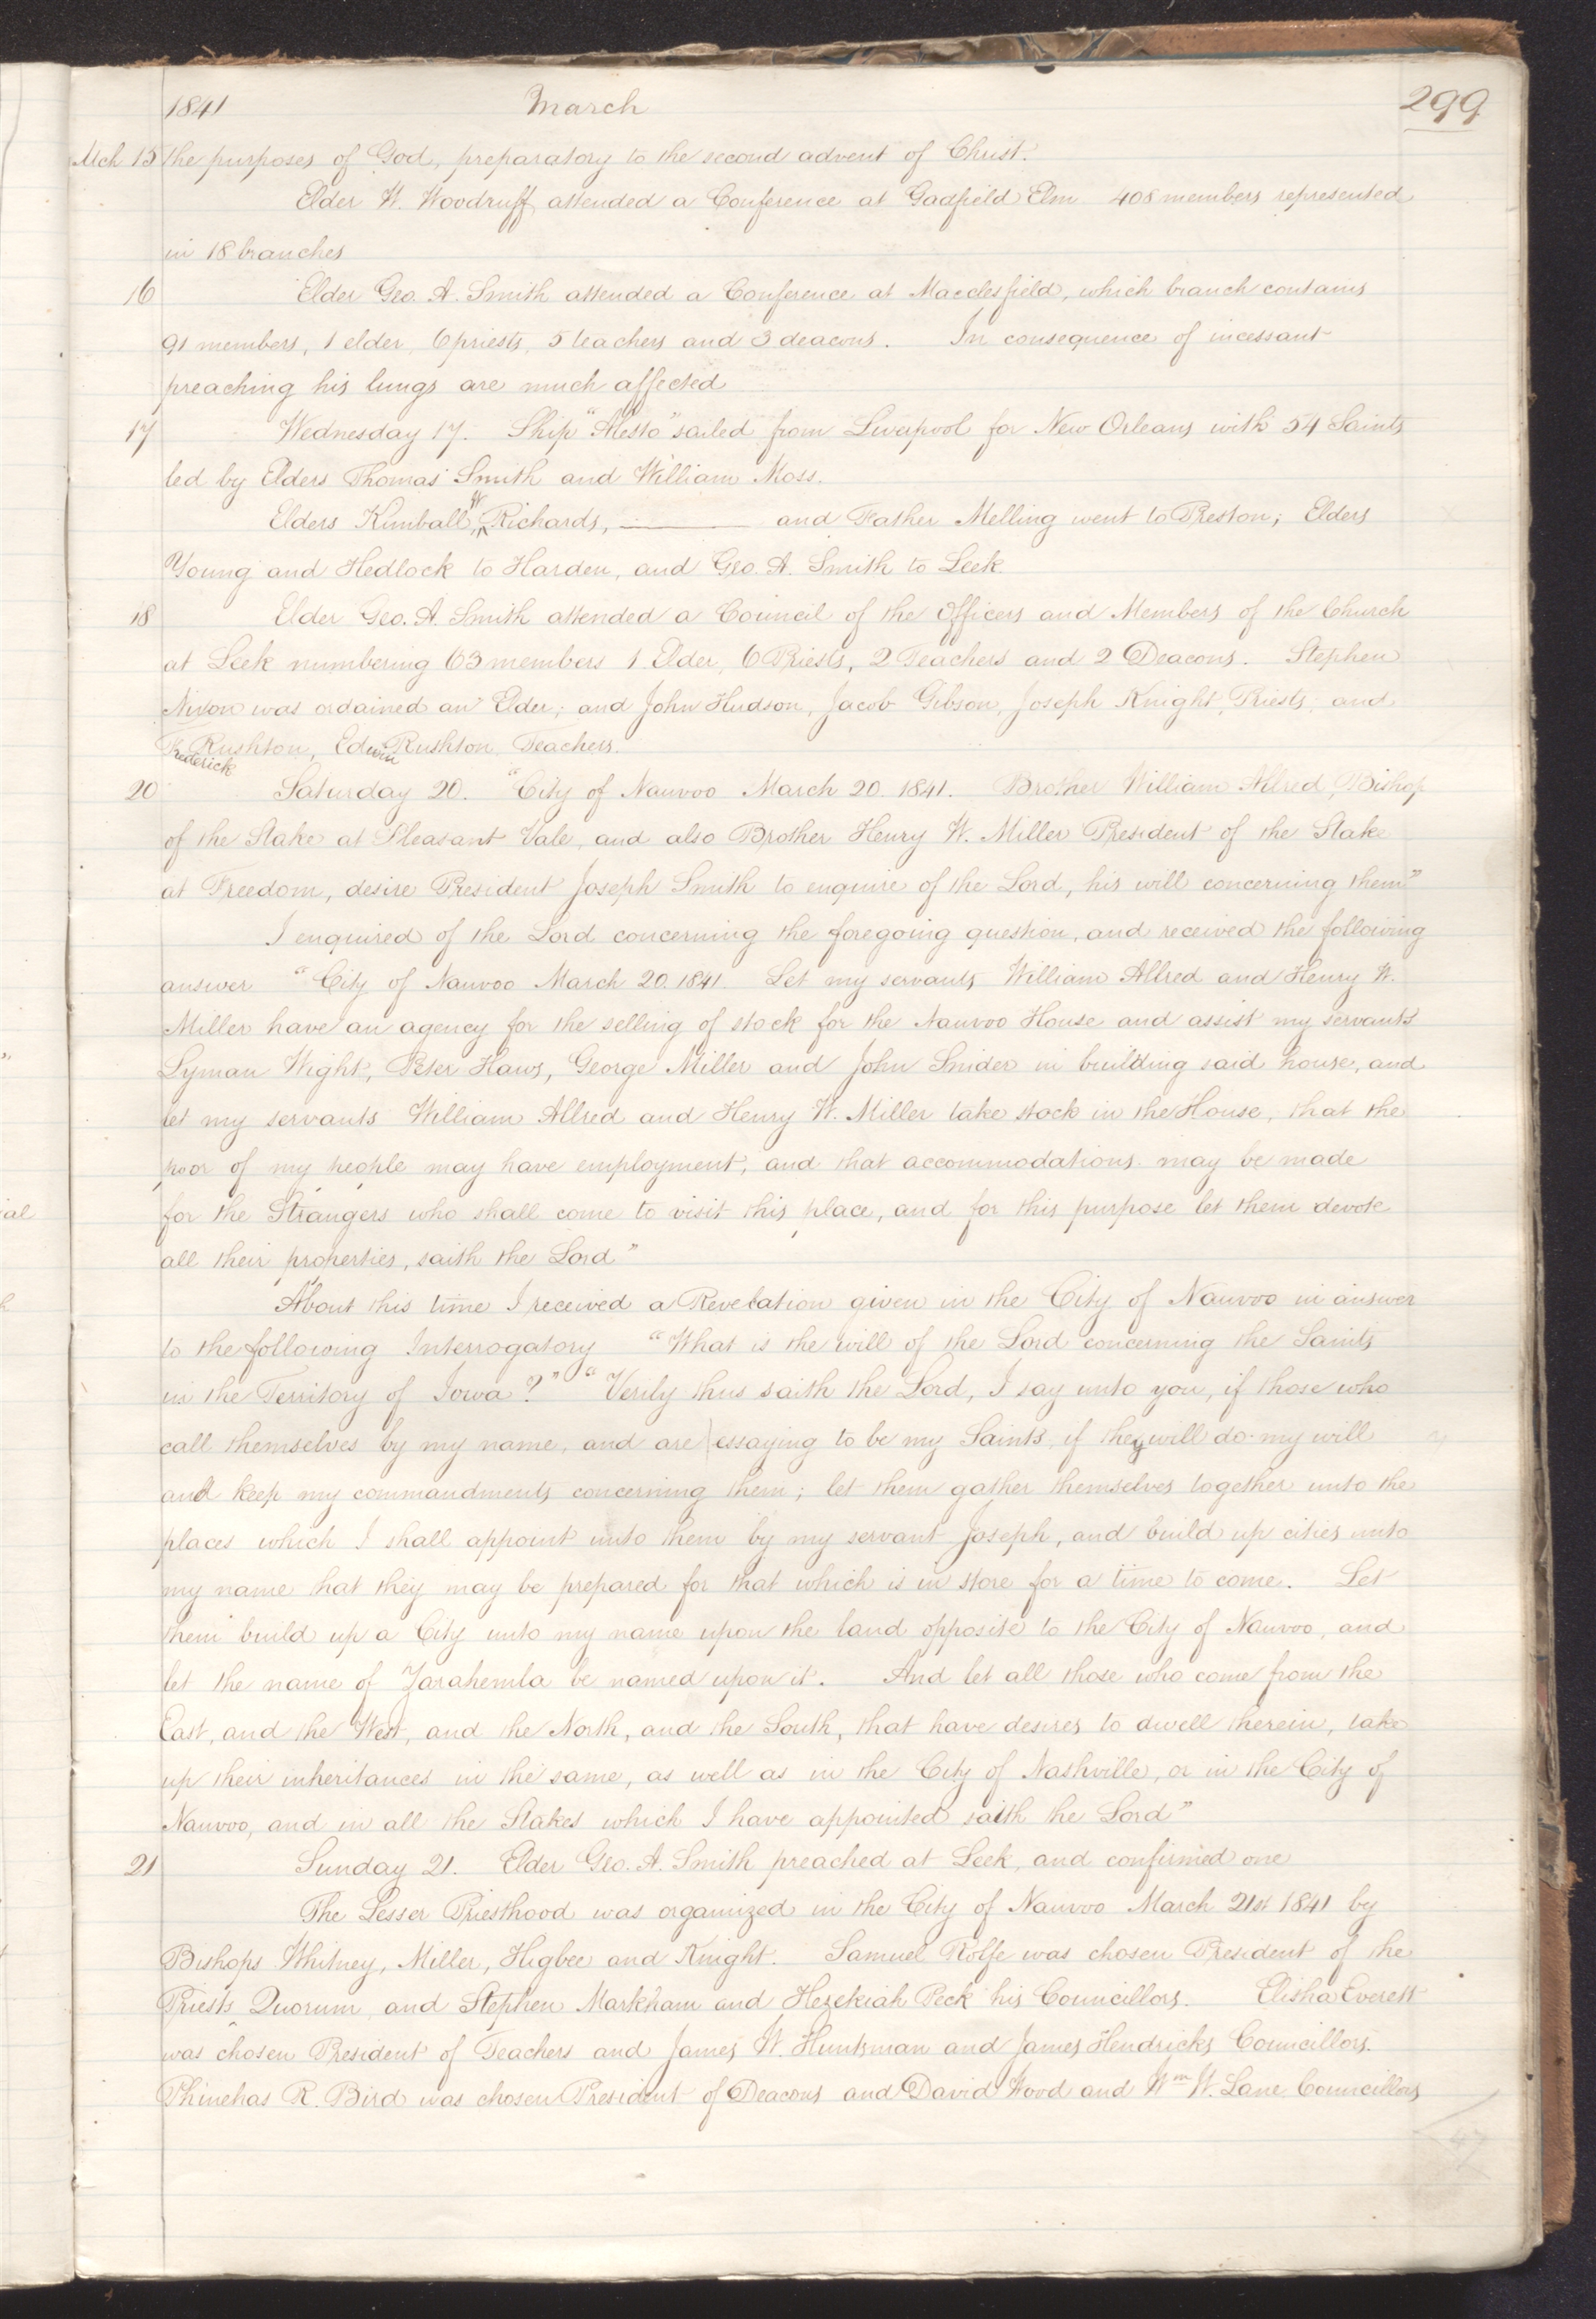 1841 March 299
Mch 15 the purposes of God, preparatory to the second advent of Christ.
Elder W. Woodruff attended a Conference at Gadfield Elm 408 members represented
in 18 branches
16 Elder Geo. A. Smith attended a Conference at Macclesfield, which branch contains
91 members, 1 elder, 6 priests, 5 teachers and 3 deacons. In consequence of incessant
preaching his lungs are much affected
17 Wednesday 17. Ship "Alesto" sailed from Liverpool for New Orleans with 54 Saints
led by Elders Thomas Smith and William Moss.
Elders Kimball, W Richards, ——— and Father Melling went to Preston; Elders
Young and Hedlock to Harden, and Geo. A. Smith to Leek.
18 Elder Geo. A. Smith attended a Council of the Officers and Members of the Church
at Leek numbering 63 members 1 Elder, 6 Priests, 2 Teachers and 2 Deacons. Stephen
Nixon was ordained an Elder; and John Hudson, Jacob Gibson, Joseph Knight, Priests; and
Frederick Rushton, Edwin Rushton Teachers.
20 Saturday 20. "City of Nauvoo March 20. 1841. Brother William Allred, Bishop
of the Stake at Pleasant Vale, and also Brother Henry W. Miller President of the Stake
at Freedom, desire President Joseph Smith to enquire of the Lord, his will concerning them"
I enquired of the Lord concerning the foregoing question, and received the following
answer "City of Nauvoo March 20. 1841. Let my servants William Allred and Henry W.
Miller have an agency for the selling of stock for the Nauvoo House and assist my servants
Lyman Wight, Peter Haws, George Miller and John Snider in building said house, and
let my servants William Allred and Henry W. Miller take stock in the House, that the
poor of my people may have employment, and that accommodations may be made
for the Strangers who shall come to visit this place, and for this purpose let them devote
all their properties, saith the Lord"
About this time I received a Revelation given in the City of Nauvoo in answer
to the following Interrogatory "What is the will of the Lord concerning the Saints
in the Territory of Iowa?" "Verily thus saith the Lord, I say unto you, if those who
call themselves by my name, and are essaying to be my Saints, if they will do my will
and keep my commandments concerning them; let them gather themselves together unto the
places which I shall appoint unto them by my servant Joseph, and build up cities unto
my name hat they may be prepared for that which is in store for a time to come. Let
them build up a City unto my name upon the land opposite to the City of Nauvoo, and
let the name of Zarahemla be named upon it. And let all those who come from the
East, and the West, and the North, and the South, that have desires to dwell therein, take
up their inheritances in the same, as well as in the City of Nashville, or in the City of
Nauvoo, and in all the Stakes which I have appointed saith the Lord"
21 Sunday 21. Elder Geo. A. Smith preached at Leek, and confirmed one
The Lesser Priesthood was organized in the City of Nauvoo March 21st 1841 by
Bishops Whitney, Miller, Higbee and Knight. Samuel Rolfe was chosen President of the
Priests Quorum, and Stephen Markham and Hezekiah Peck his Councillors. Elisha Everett
was chosen President of Teachers and James W. Huntsman and James Hendricks Councillors.
Phinehas R. Bird was chosen President of Deacons and David Wood and Wm W. Lane Councillors
47